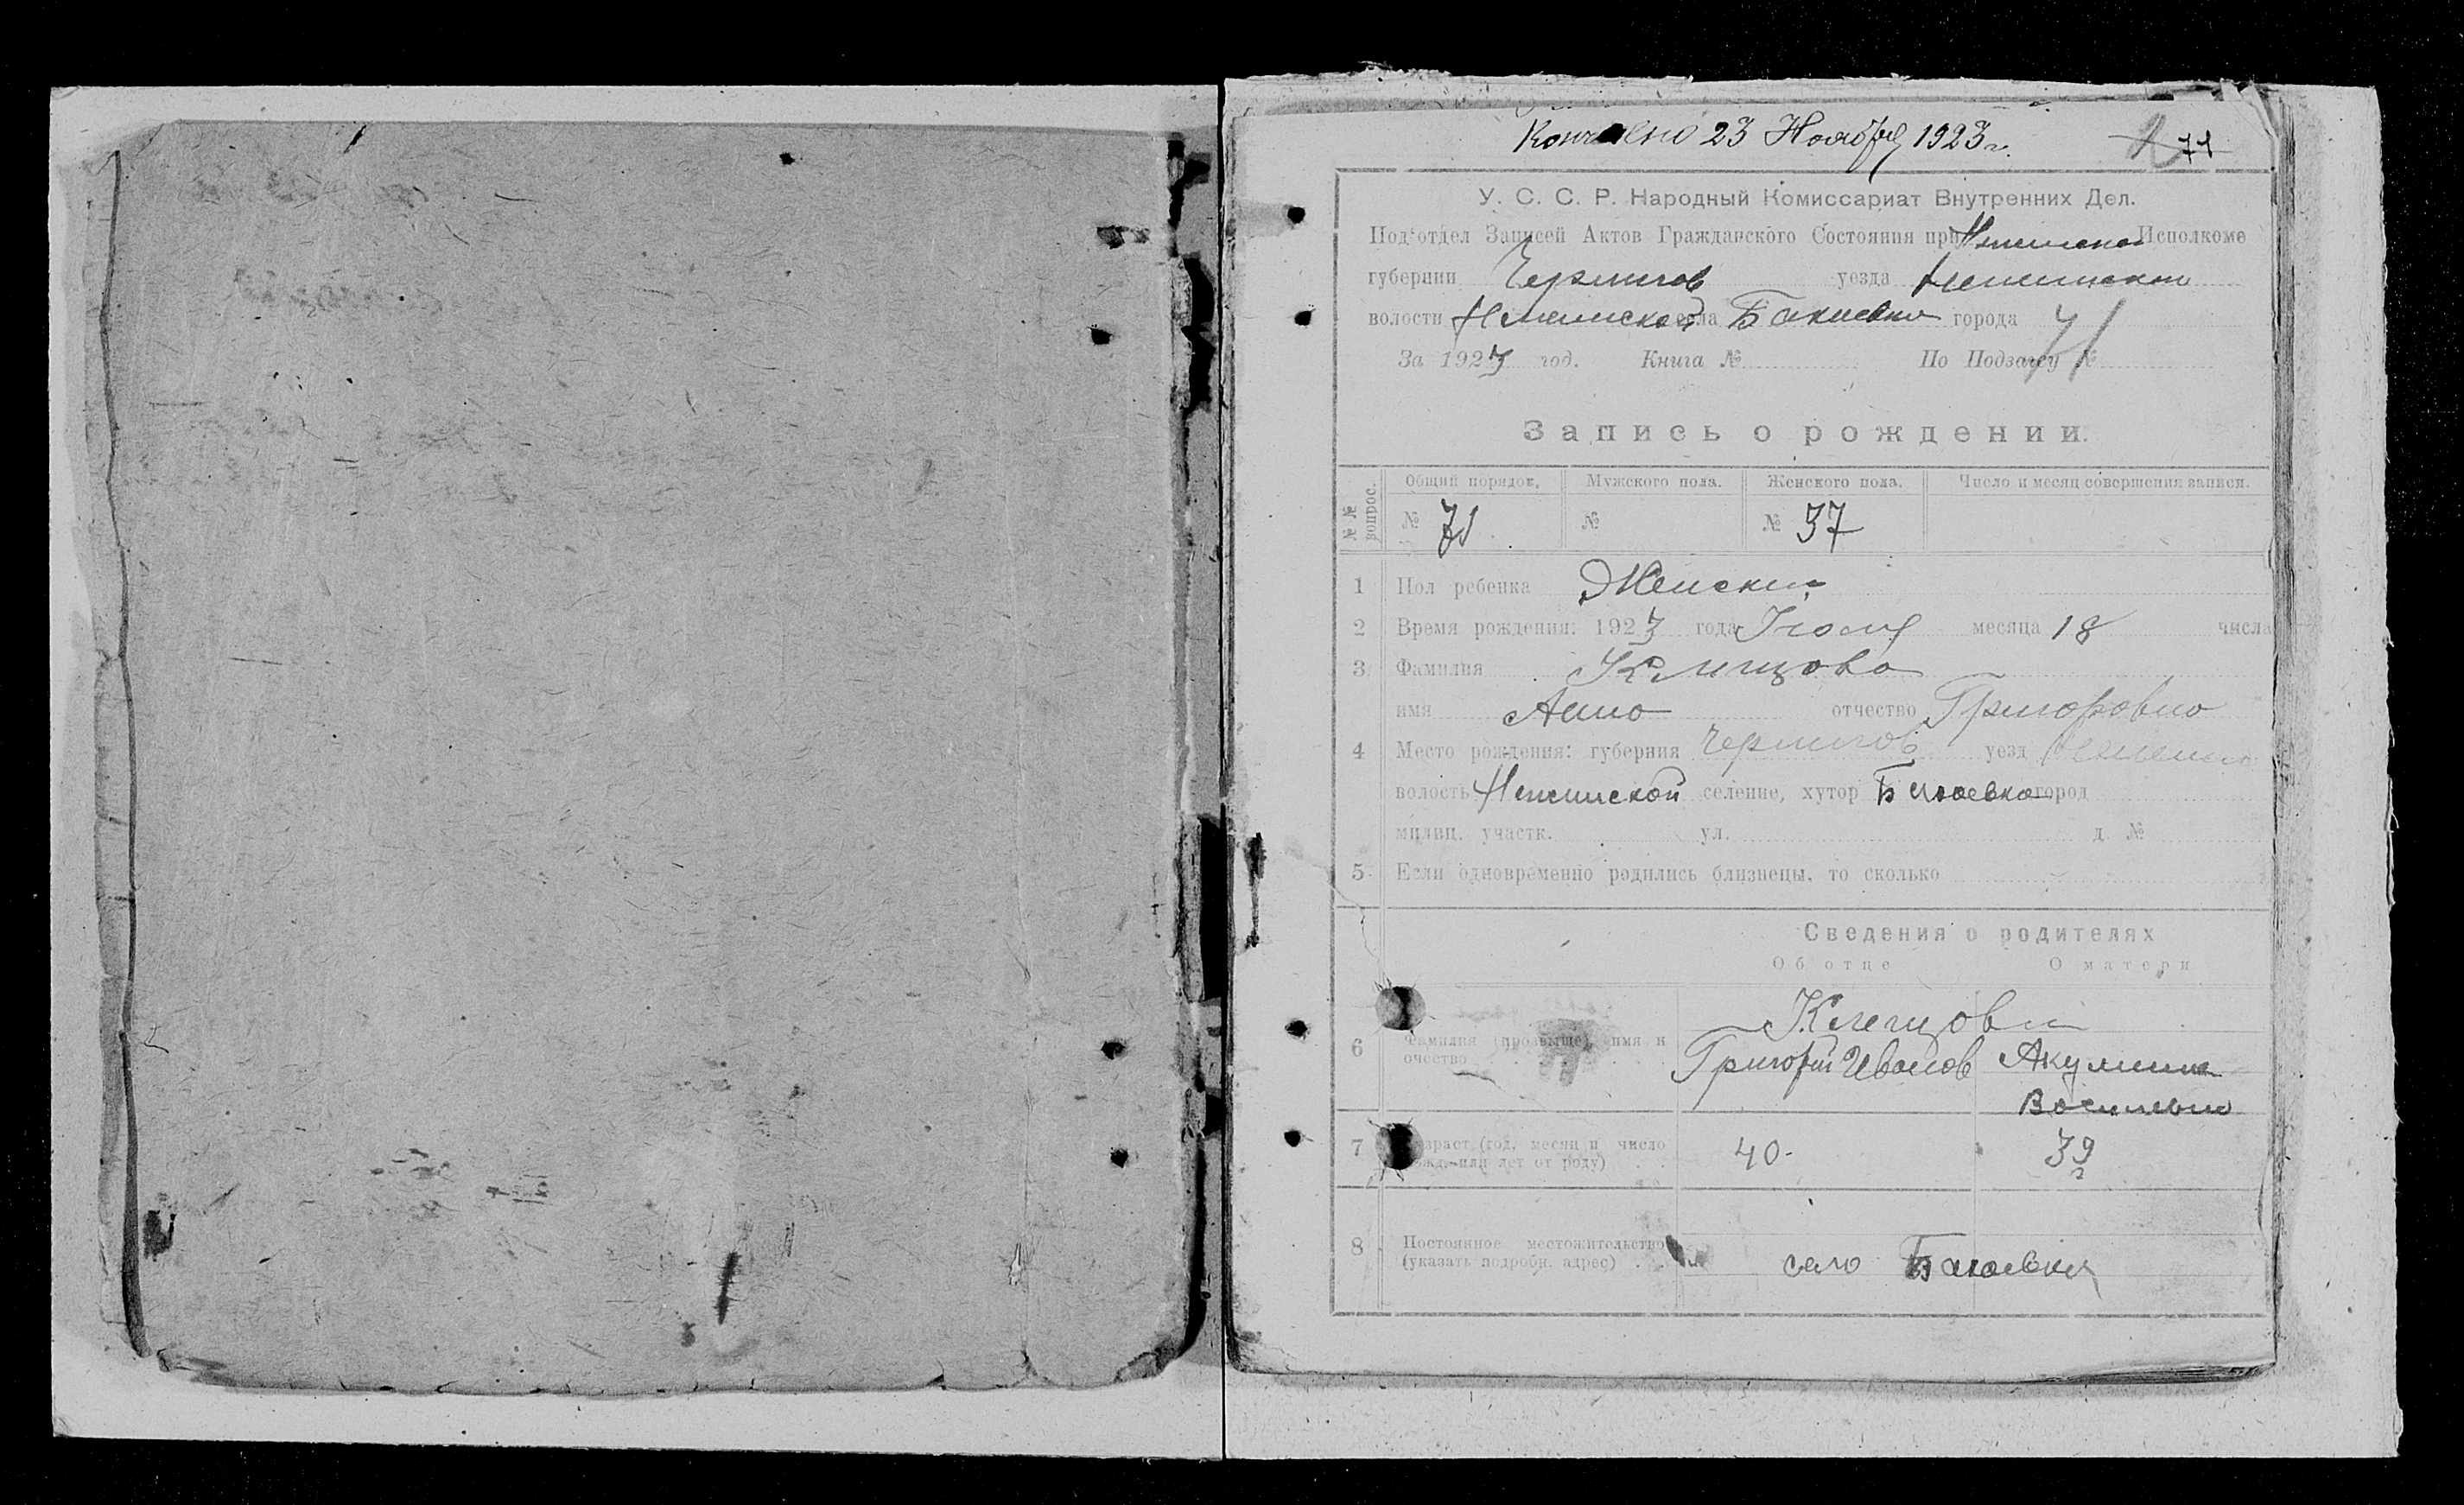 23 Ноября 1923 г.
71
У. С. С. Р. Народный Комиссариат Внутренних Дел.
Подотдел Записей Актов Гражданского Состояния при Исполкоме
губернии Чернигов уезда
волости села города
За 1923 год. Книга № По Подзагсу №
71
Запись о рождении.
№№ вопрос. Общий порядок. Мужского пола. Женского пола. Число и месяц совершения записи.
№ 71 № № 37
1 Пол ребенка Женский
2 Время рождения: 1923 года месяца 18 числа
3 Фамилия Клищова
имя Анна отчество Григоровна
4 Место рождения: губерния Чернигов уезд
волость Нежинской селение, хутор город
милиц. участк. ул. д. №
5 Если одновременно родились близнецы, то сколько
Сведения о родителях
Об отце О матери
6 Фамилия (прозвище), имя и Клещови
очество Григорий Иванов Акулина
7 Возраст (год, месяц и число 40 39
рожд. или лет от роду)
8 Постоянное местожительство
(указать подробн. адрес) село